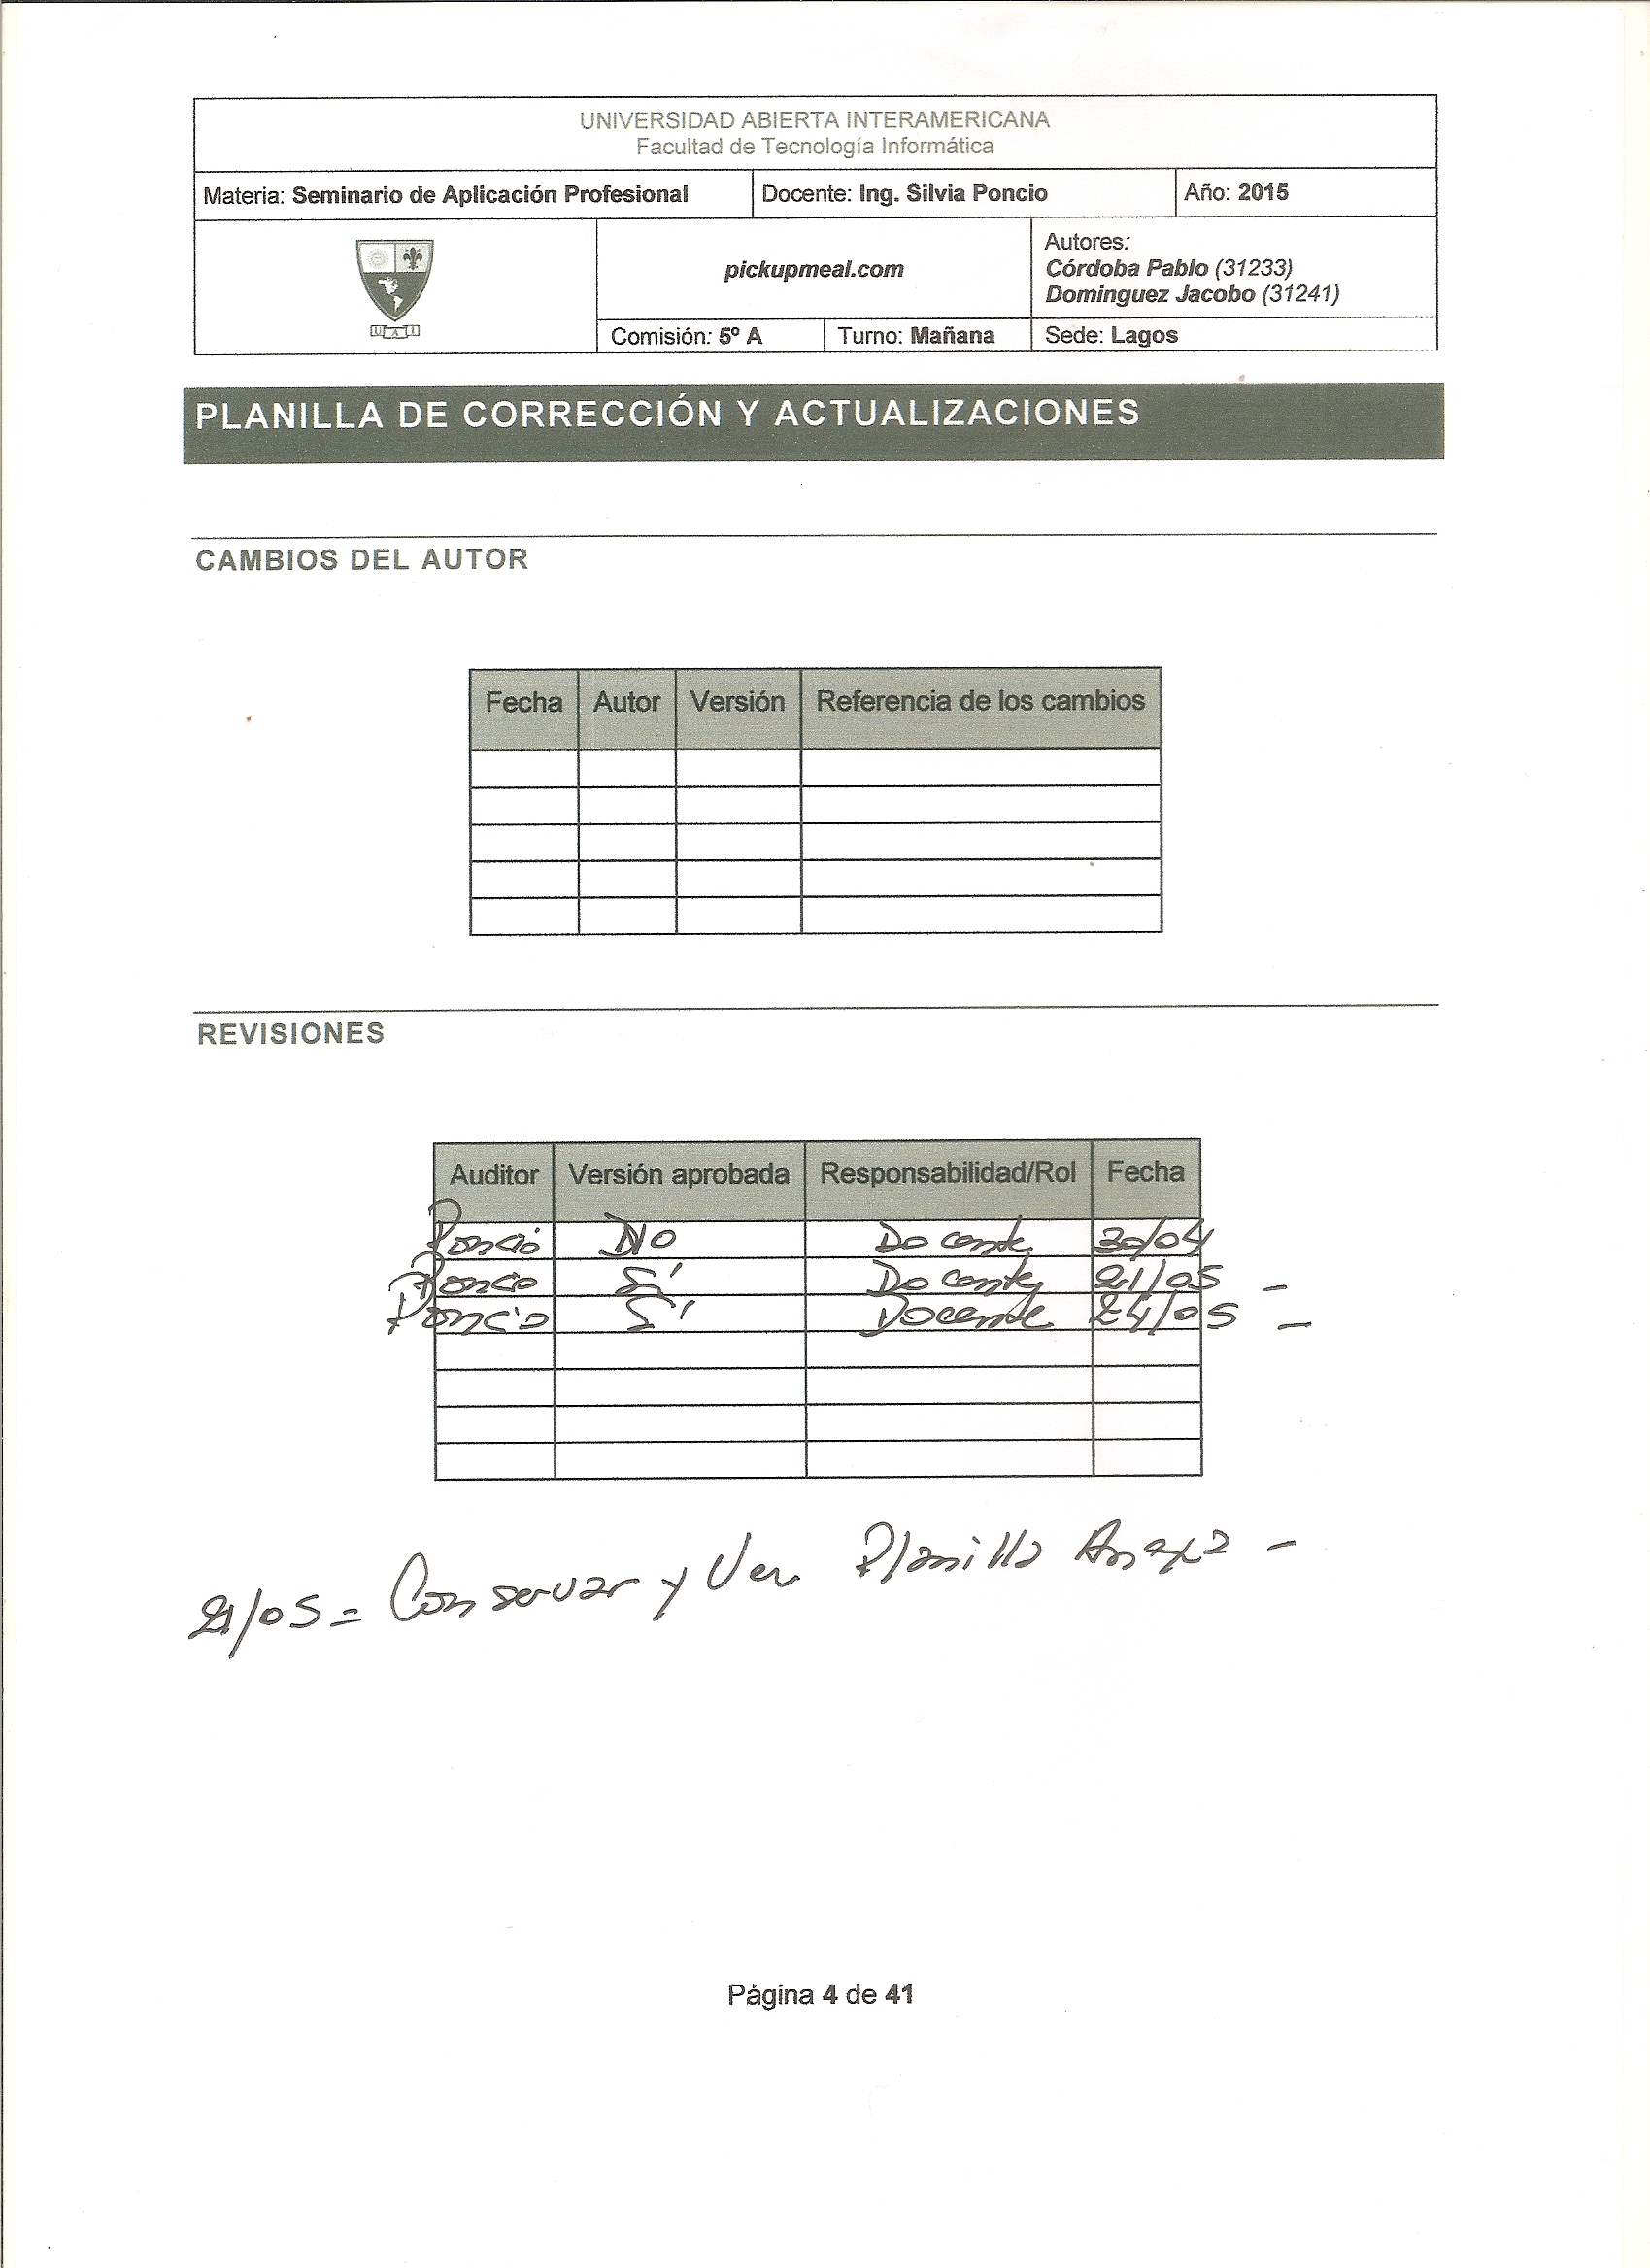 UNIVERSIDAD ABIERTA INTERAMERICANA
Facultad de Tecnología Informática
Materia: Seminario de Aplicación Profesional Docente: Ing. Silvia Poncio Año: 2015
pickupmeal.com
Autores:
Córdoba Pablo (31233)
Dominguez Jacobo (31241)
UAI
Comisión: 5º A Turno: Mañana Sede: Lagos
PLANILLA DE CORRECCIÓN Y ACTUALIZACIONES
CAMBIOS DEL AUTOR
Fecha Autor Versión Referencia de los cambios
REVISIONES
Auditor Versión aprobada Responsabilidad/Rol Fecha
Poncio NO Docente 30/04
Poncio Sí Docente 21/05 -
Poncio Sí Docente 24/05 -
21/05 = Conservar y Ver Planilla Anexa -
Página 4 de 41